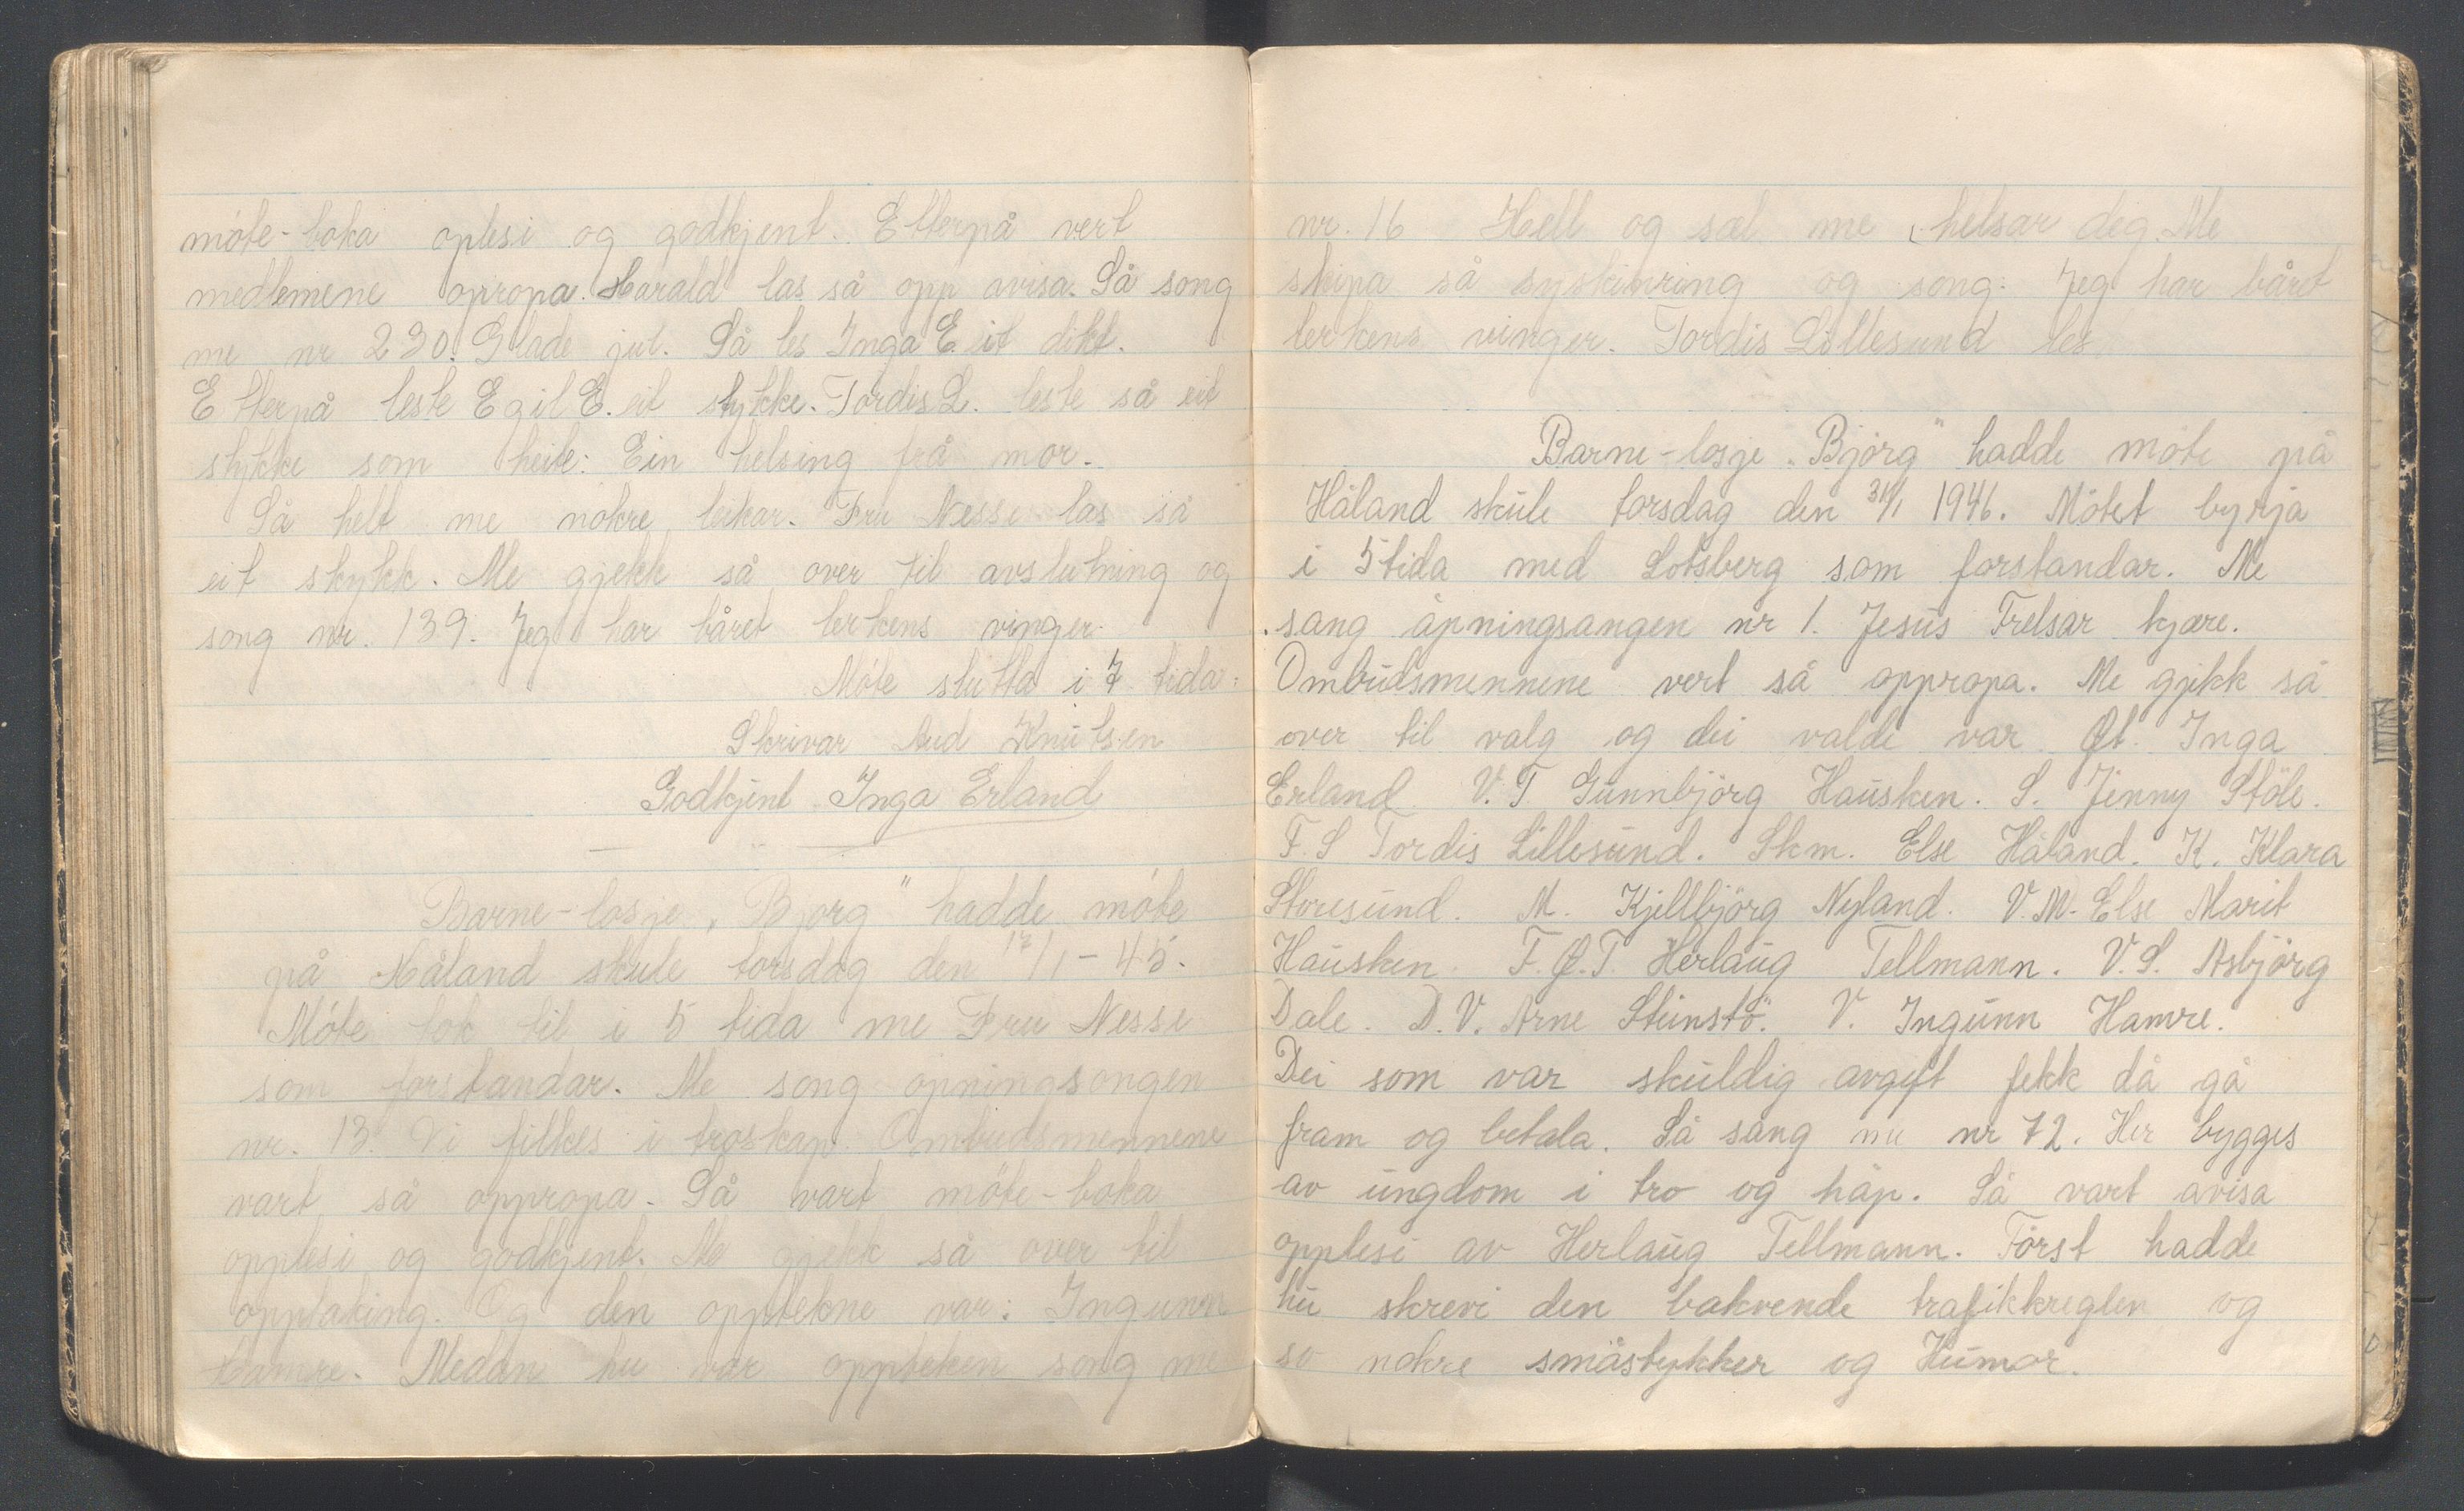 möte-boka oplesi og godkjent. Etterpå vert
medlemene opropa. Harald las så opp avisa. Så song
me nr 230. Glade jul. Så les Inga E. eit dikt.
Etterpå leste Egil E. eit stykke. Tordis L. leste så eit
stykke som heite: Ein helsing frå mor.
Så helt me nokre leikar. Fru Nesse las så
eit stykk. Me gjekk så over til avslutning og
song nr. 139. Jeg har båret lerkens vinger.
Möte slutta i 7 tida.
Skrivar Aud Knutsen
Godkjent Inga Erland
Barne-losje „Bjorg" hadde möte
på Håland skule torsdag den 17/1-45.
Möte tok til i 5 tida me Fru Nesse
som forstandar. Me song opningsongen
nr. 13. Vi filkes i troskap. Ombudsmennene
vart så oppropa. Så vart möte-boka
opplesi og godkjent. Me gjekk så over til
opptaking. Og den opptekne var: Ingunn
Hamre. Medan hu var oppteken song me
nr. 16 Hell og sæl me helsar deg. Me
skipa så syskinring og song: Jeg har båret
lerkens vinger. Tordis Lillesund les
Barne-losje „Björg" hadde möte på
Håland skule torsdag den 31/1 1946. Mötet byrja
i 5tida med Lotsberg som forstandar. Me
sang åpningsangen nr 1. Jesus Frelsar kjære.
Ombudsmennene vert så oppropa. Me gjekk så
over til valg og dei valde var Øt. Inga
Erland. V.T Gunnbjörg Hausken. S. Jenny Stöle.
F.S Tordis Lillesund. Skm. Else Håland. K. Klara
Storesund. M. Kjellbjörg Nyland. V.M. Else Marit
Hausken. F.Ø.T. Herlaug Tellmann. V.S. Asbjörg
Dale. D.V. Arne Steinstö. V. Ingunn Hamre.
Dei som var skuldig avgift fekk då gå
fram og betala. Så sang me nr 72. Her bygges
av ungdom i tro og håp. Så vart avisa
opplesi av Herlaug Tellmann. Först hadde
hu skrevi den bakvende trafikkreglen og
so nokre småstykker og Humor.